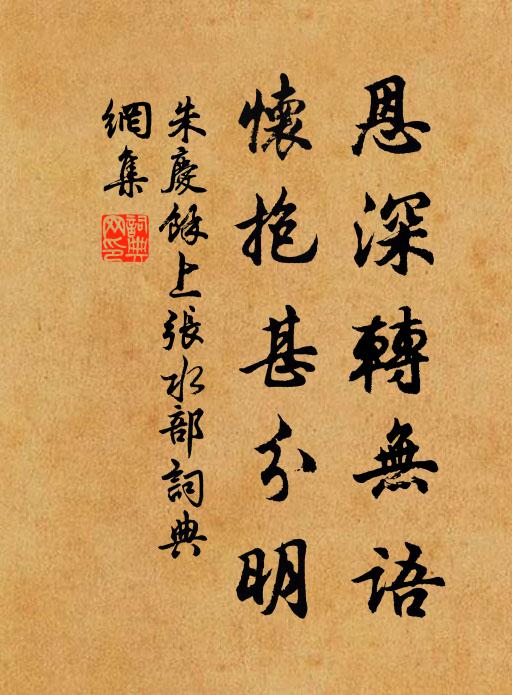 恩深轉無語
懷抱甚分明
朱慶餘上張水部詞典
網集
詞典網印